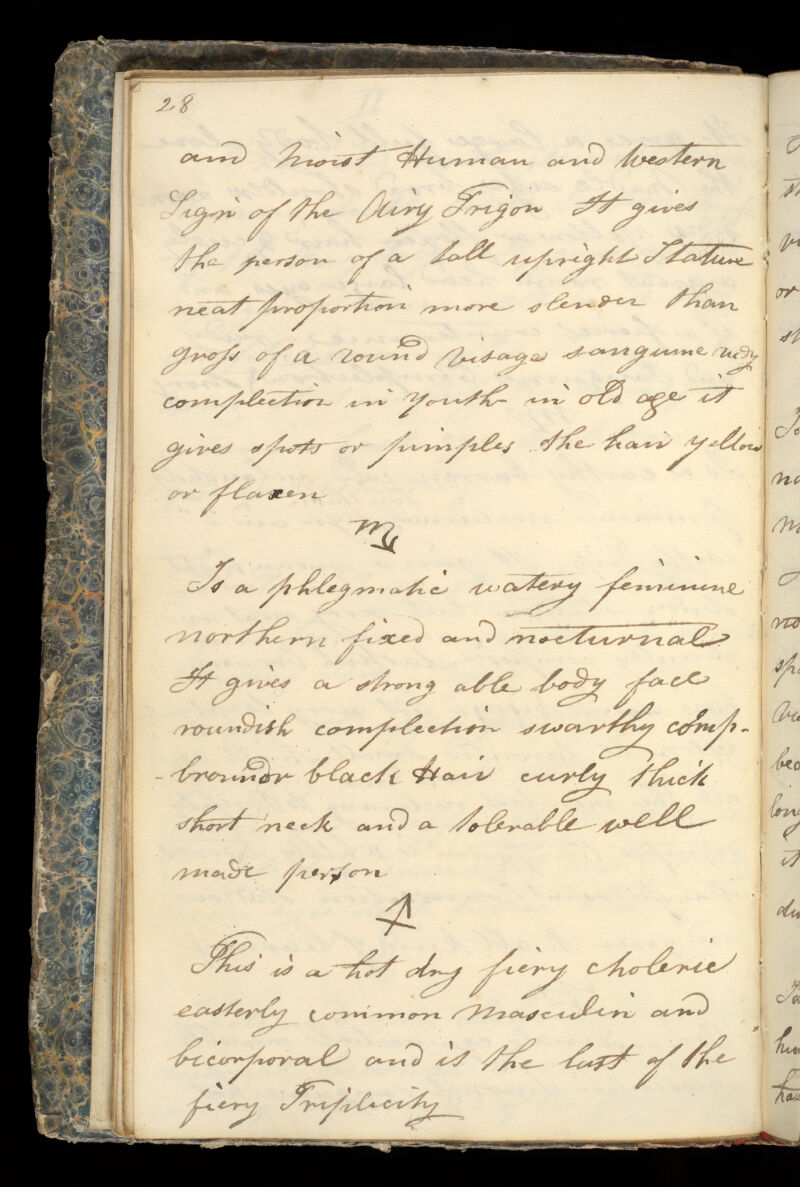 28
and moist Human and Western
Sign of the Airy Trigon It gives
the person of a tall upright Stature
neat proportion more slender than
gross of a round Visage sanguine
complection in youth- in old age it
gives spots or pimples the hair yellow
or flaxen
♏
Is a phlegmatic watery feminine
northern fixed and nocturnal
It gives a strong able body face
roundish complection swarthy
brown or black Hair curly thick
short neck and a tolerable well
made person
♐
This is a hot dry fiery choleric
easterly common Masculin and
bicorporal and is the last of the
fiery Triplicity